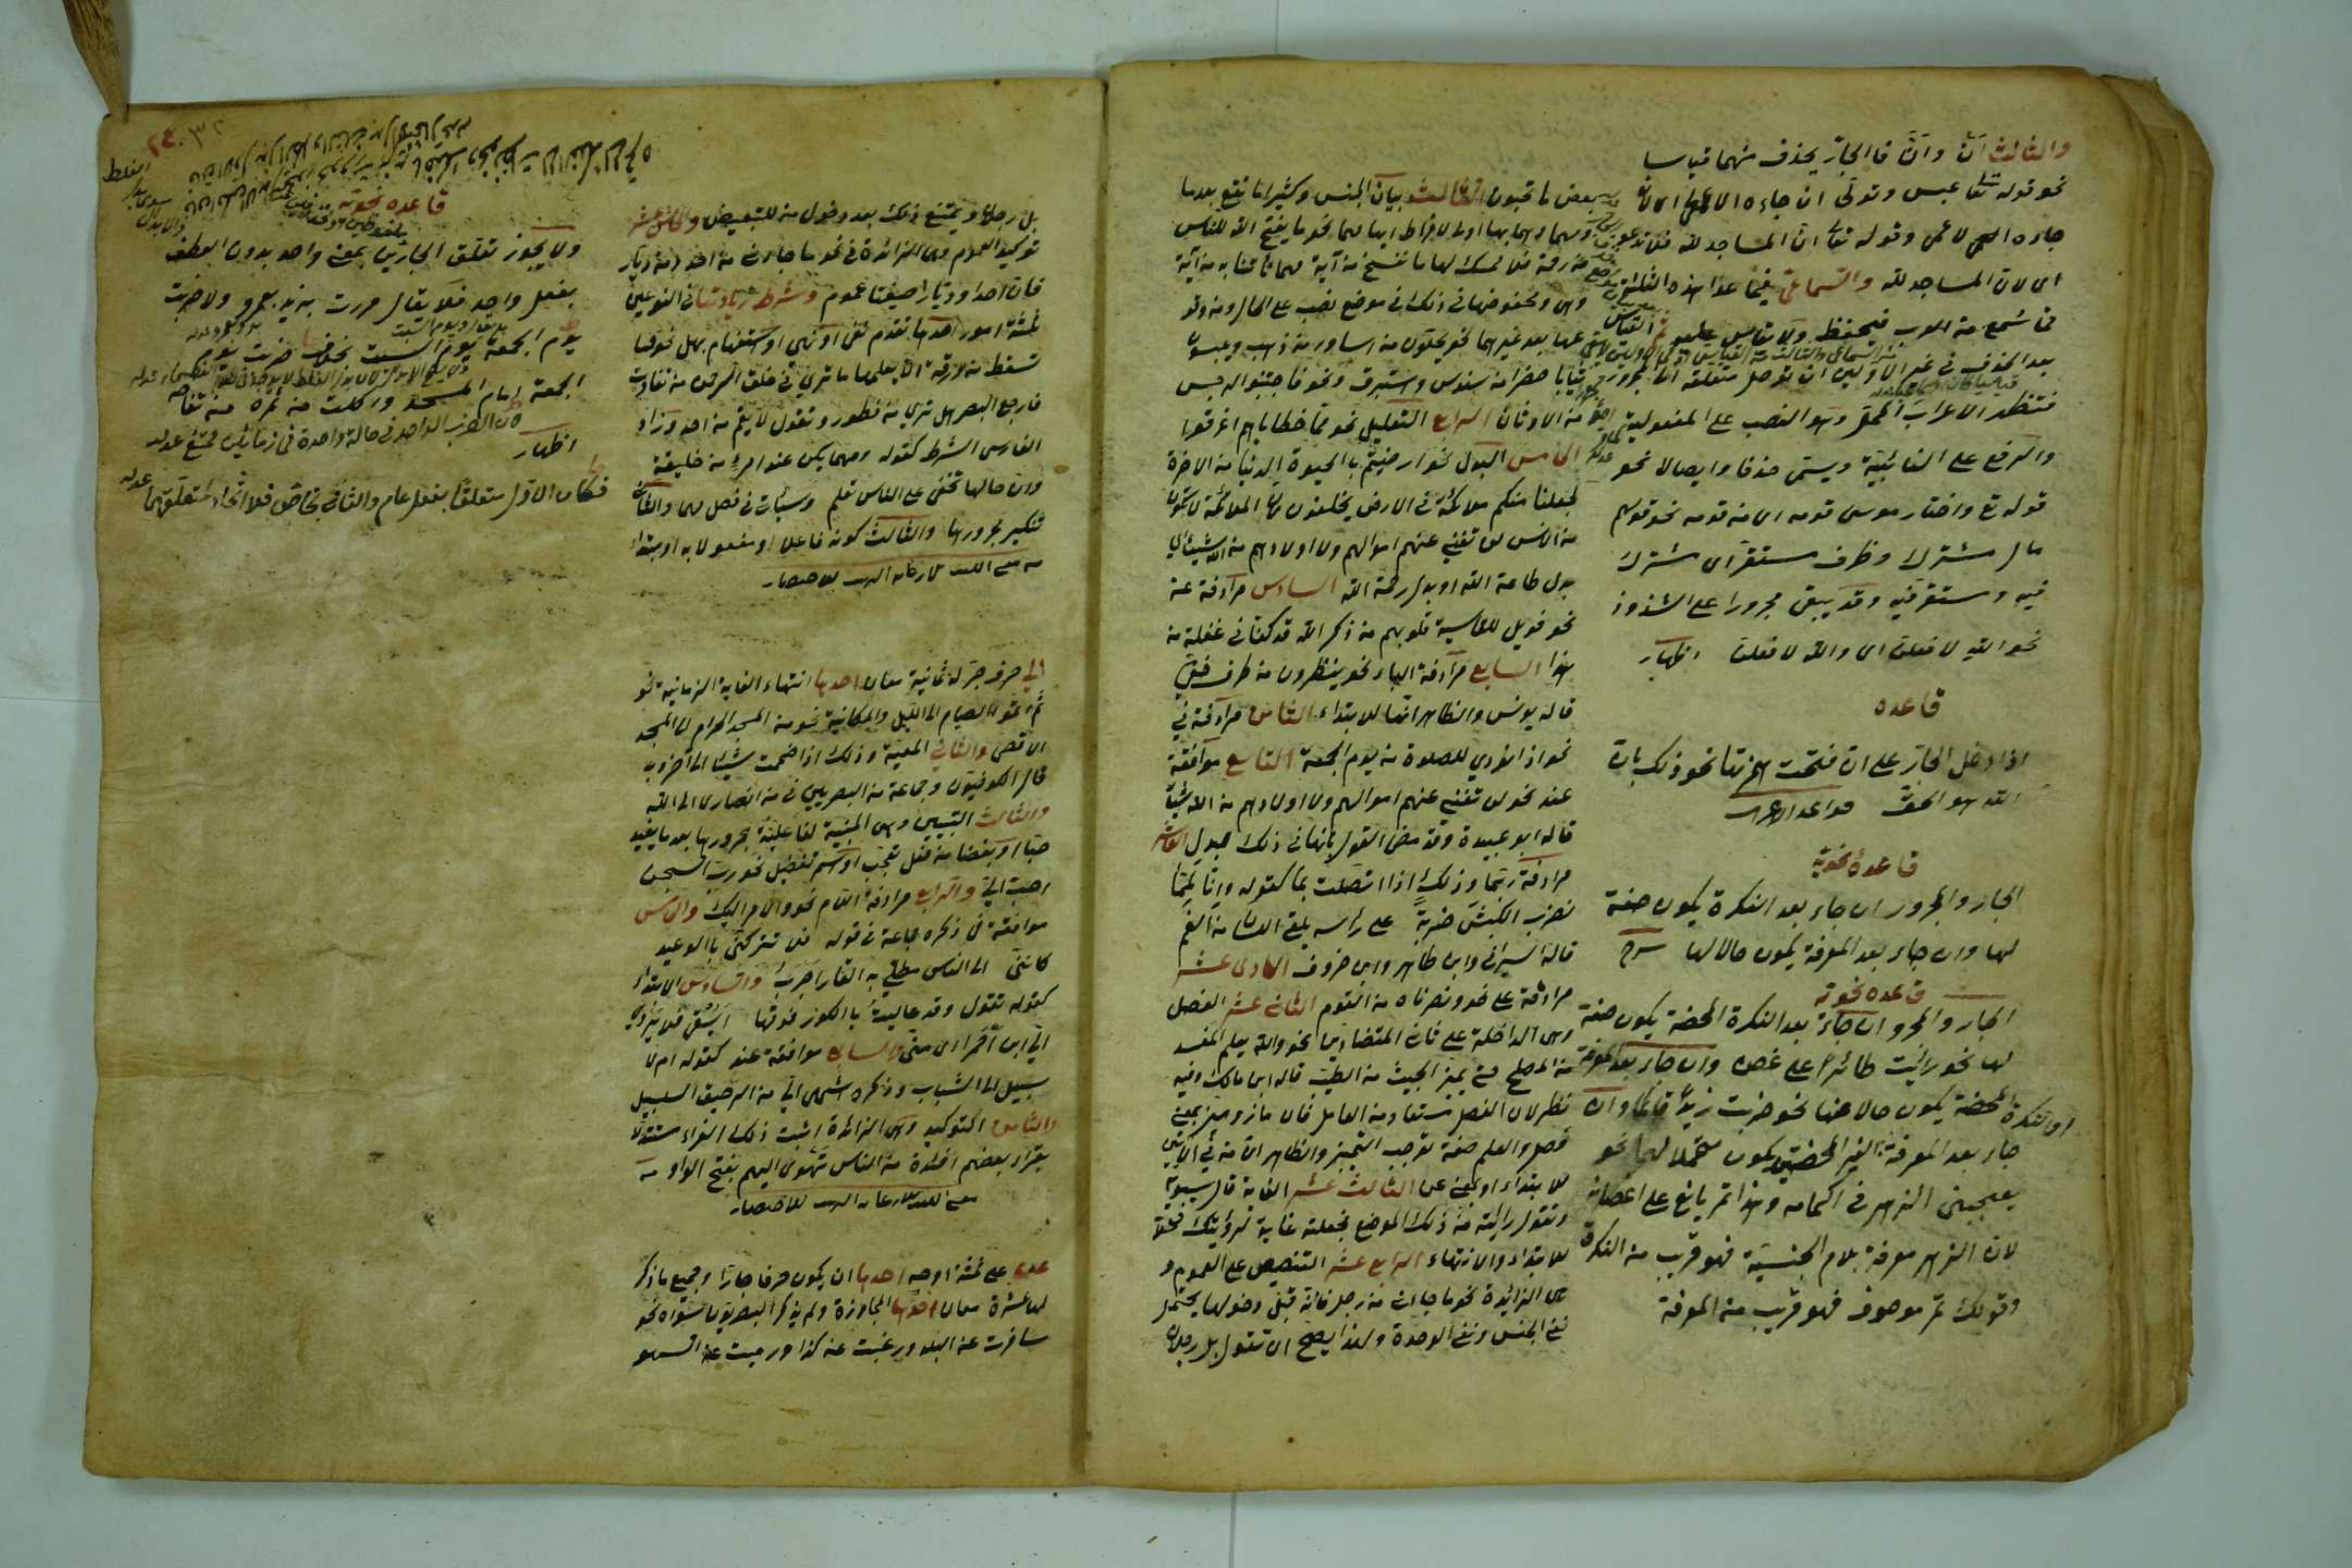 والثالث انْ وانّ فالجارّ يحذف منهما قياسا
نحو قوله تعا عبس وتولّى ان جاءه الاعمى اى لان
جاءه الاعمى وقوله تعا انّ المساجد لله فلا تدعو
اى لان المساجد لله والسماعى فيما عدا هذه الثلثة
فما سمع من العرب فيحفظ ولا يقاس عليه
بعد الحذف فى غير الاولين ان توصل متعلقه الى المجرور
فتظهر الاعراب المحلى وهو النصب على المفعولية
والرفع على النائبية ويسمى حذفا وايصالا نحو
قوله تع واختار موسى قومه اى من قومه نحو قولهم
مال مشترك وظرف مستقر اى مشترك
فيه ومستقر فيه وقد يبقى مجرورا على الشذوذ
نحو الله لافعلن اى والله لافعلن اظهار
قاعده
اذا دخل الجار على ان فتحت همزتها نحو ذلك بان
الله هو الحق قواعد الاعراب
قاعدة نحوية
الجار والمجرور ان جاء بعد النكرة يكون صفة
لها وان جاء بعد المعرفة يكون حالا لها شرح
قاعده نحويه
الجار والمجرور ان جاء بعد النكرة المحضة يكون صفة
لها نحو رأيت طائرا على غصن وان جاء بعد المعرفة
المحضة يكون حالا عنها نحو ضربت زيدا قائما وان
جاء بعد المعرفة الغير المحضتين يكون محتملا لهما نحو
يعجبنى الزهر فى اكمامه وهذا ثمر يانع على اغصانه
لان الزهر معرفة بلام الجنسية فهو قريب من النكرة
وقولك ثمر موصوف فهو قريب من المعرفة
بعض ما تحبون الثالث بيان الجنس وكثيرا ما تقع بعد ما
ومهما وهما بها اولى لافراط ابهامهما نحو ما يفتح الله للناس
من رحمة فلا ممسك لها ما ننسخ من آية مهما تأتنا به من آية
وهى ومخفوضها فى ذلك فى موضع نصب على الحال ومن وقو
عها بعد غيرهما نحو يحلون من اساور من ذهب ويلبسون
ثيابا خضرا من سندس واستبرق ونحو فاجتنبوا الرجس
من الاوثان الرابع التعليل نحو مما خطاياهم اغرقوا
الخامس البدل نحو ارضيتم بالحيوة الدنيا من الاخرة
لجعلنا منكم ملائكة فى الارض يخلفون لان الملائكة لا تكون
من الانس لن تغنى عنهم اموالهم ولا اولادهم من الله شيئا اى
بدل طاعة الله او بدل رحمة الله السادس مرادفة عن
نحو فويل للقاسية قلوبهم من ذكر الله قد كنا فى غفلة من
هذا السابع مرادفة الباء نحو ينظرون من طرف خفى
قاله يونس والظاهر انها للابتداء الثامن مرادفة فى
نحو اذا نودي للصلوة من يوم الجمعة التاسع موافقة
عند نحو لن تغنى عنهم اموالهم ولا اولادهم من الله شيئا
قاله ابو عبيدة وقد مضى القول بانها فى ذلك للبدل العاشر
مرادفة ربما وذلك اذا اتصلت بما كقوله وانا لمما
نضرب الكبش ضربة على رأسه يلقى اللسان من الفم
قاله السيرافى وابن طاهر وابن خروف الحادى عشر
مرادفة على نحو ونصرناه من القوم الثانى عشر الفصل
وهى الداخلة على ثانى المتضادين نحو والله يعلم المفسد
من المصلح حتى يميز الخبيث من الطيب قاله ابن مالك وفيه
نظر لان الفصل مستفاد من العامل فان ماز وميز بمعنى
فصل والعلم صفة توجب التميز والظاهر ان من فى الآيتين
للابتداء او بمعنى عن الثالث عشر الغاية قال سيبويه
وتقول رأيته من ذلك الموضع فجعلته غاية لرؤيتك محلا
للابتداء والانتهاء الرابع عشر التنصيص على العموم و
هى الزائدة نحو ما جاءنى من رجل فانه قبل دخولها يحتمل
نفى الجنس ونفى الوحدة ولهذا يصح ان تقول بل رجلان
بل رجلان ويمتنع ذلك بعد دخول من للتبعيض والخامس عشر
توكيد العموم وهى الزائدة فى نحو ما جاءنى من احد او من ديار
فان احدا وديارا صيغتا عموم وشرط زيادتها فى النوعين
ثلثة امور احدها تقدم نفى او نهى او استفهام بهل نحو وما
تسقط من ورقة الا يعلمها ما ترى فى خلق الرحمن من تفاوت
فارجع البصر هل ترى من فطور وتقول لا يقم من احد وزاد
الفارسى الشرط كقوله ومهما يكن عند امرء من خليقة
وان خالها تخفى على الناس تعلم وسيأتى فى فصل مهما والثانى
تنكير مجرورها والثالث كونه فاعلا او مفعولا به او مبتداء
الى حرف جر له ثمانية معان احدها انتهاء الغاية الزمانية نحو
ثم اتموا الصيام الى الليل والمكانية نحو من المسجد الحرام الى المسجد
الاقصى والثانى المعية وذلك اذا ضممت شيئا الى آخر وبه
قال الكوفيون وجماعة من البصريين فى من انصارى الى الله
والثالث التبيين وهى المبينة لفاعلية مجرورها بعد ما يفيد
حبا او بغضا من فعل تعجب او اسم تفضيل نحو رب السجن
احب الى والرابع مرادفة اللام نحو والامر اليك والخامس
موافقة فى ذكره جماعة فى قوله فلا تتركنى بالوعيد
كاننى الى الناس مطلى به القار اجرب والسادس الابتداء
كقوله تقول وقد عاليت بالكور فوقها ايسقى فلا يروى
الى ابن احمرا اى منى والسابع موافقة عند كقوله ام لا
سبيل الى الشباب وذكره اشهى الى من الرحيق السلسل
والثامن التوكيد وهى الزائدة اثبت ذلك الفراء مستدلا
بقراءة بعضهم افئدة من الناس تهوى اليهم بفتح الواو
عن على ثلثة اوجه احدها ان يكون حرفا جارا وجميع ما ذكر
لها عشرة معان احدها المجاوزة ولم يذكر البصريون سواه نحو
سافرت عن البلد ورغبت عن كذا ورميت عن القوس
قاعده نحويه
ولا يجوز تعلق الجارين بمعنى واحد بدون العطف
بفعل واحد فلا يقال مررت بزيد بعمرو ولا ضربت
يوم الجمعة يوم السبت بخلاف ضربت يوم
الجمعة امام المسجد واكلت من ثمره من تفاحه
لان الضرب الواحد فى حالة واحدة فى زمانين ممتنع عدله
اظهار
فكان الاول متعلقا بفعل عام والثانى بخاص فلا اتحاد لمتعلقهما عدله